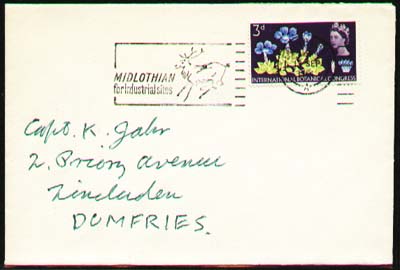 3d
INTERNATIONAL BOTANICAL CONGRESS
MIDLOTHIAN
for industrial sites
Capt. K. Jahr
2, Priory Avenue
Lincluden
DUMFRIES.